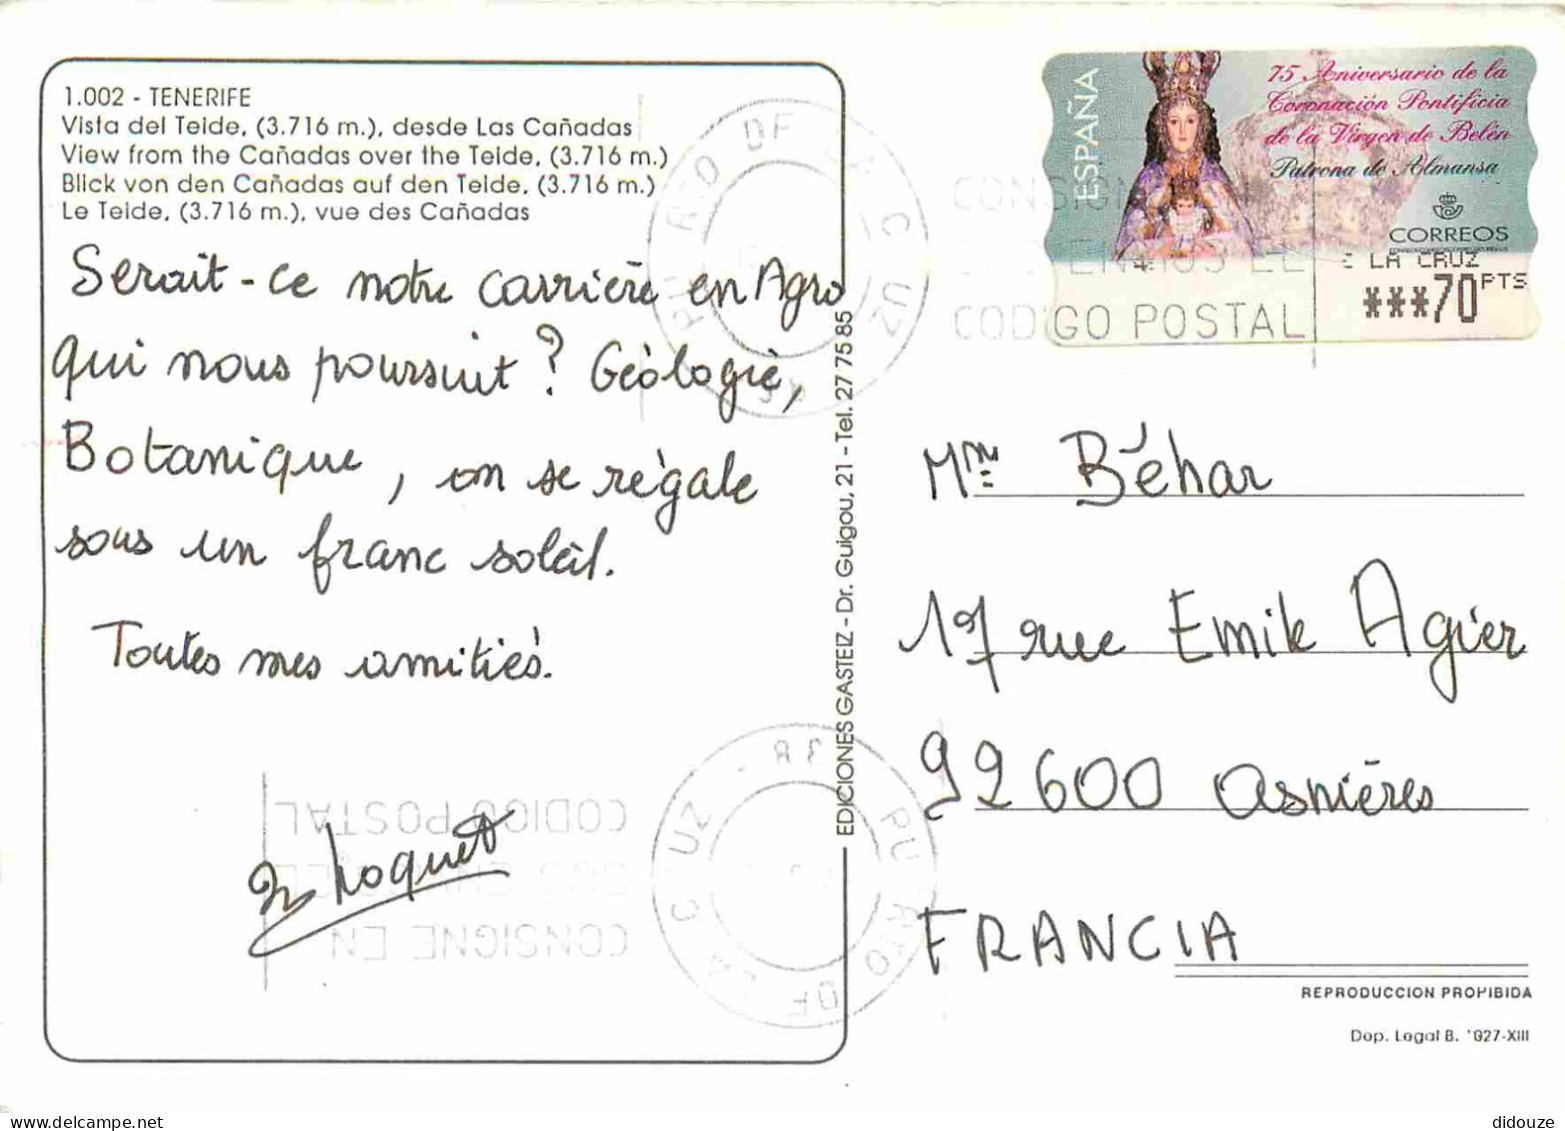 1.002 - TENERIFE
Vista del Teide, (3.716 m.), desde Las Cañadas
View from the Cañadas over the Teide, (3.716 m.)
Blick von den Cañadas auf den Teide, (3.716 m.)
Le Teide, (3.716 m.), vue des Cañadas
Serait-ce notre carrière en Agro
qui nous poursuit ? Géologie,
Botanique, on se régale
sous un franc soleil.
Toutes mes amitiés.
EDICIONES GASTEIZ - Dr. Guigou, 21 - Tel. 27 75 85
ESPAÑA
75 Aniversario de la
Coronación Pontificia
de la Virgen de Belén
Patrona de Almansa
CORREOS
E LA CRUZ
***70 PTS
PUERTO DE LA CRUZ
CODIGO POSTAL
Mme Béhar
17 rue Emile Agier
92600 Asnières
FRANCIA
REPRODUCCION PROHIBIDA
Dep. Legal B. 027-XIII
PUERTO DE LA CRUZ
CONSIGNE EN
CODIGO POSTAL
didouze